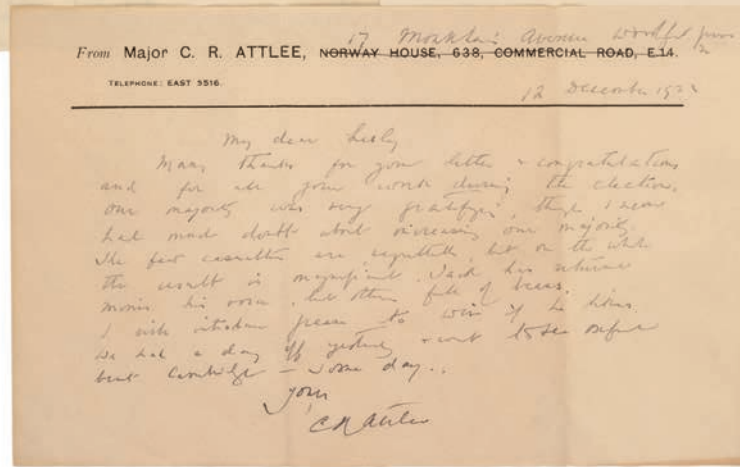 17 Monkhams Avenue Woodford Green
From Major C. R. ATTLEE, NORWAY HOUSE, 638, COMMERCIAL ROAD, E.14.
TELEPHONE: EAST 5516.
12 December 192
My dear
Many thanks for your letter & congratulations
and for all your work during the election.
Our majority was very gratifying, though I never
had much doubt about increasing our majority.
The few casualties are regrettable, but on the whole
the result is magnificent. Jack has returned
minus his voice, but otherwise full of beans.
I will introduce to him if he
We had a day off yesterday & went to see Oxford
beat Cambridge – some day..
Yours
C R Attlee